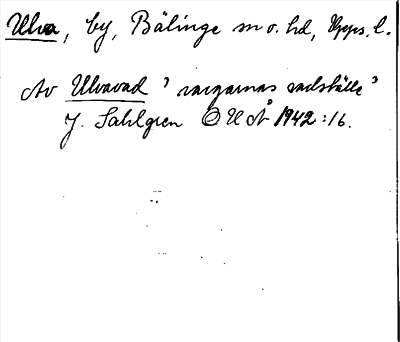 Ulva, by, Bälinge sn o. hd, Upps. l.
Av Ulvavad 'vargarnas vadställe'
J. Sahlgren OUÅ 1942:16.